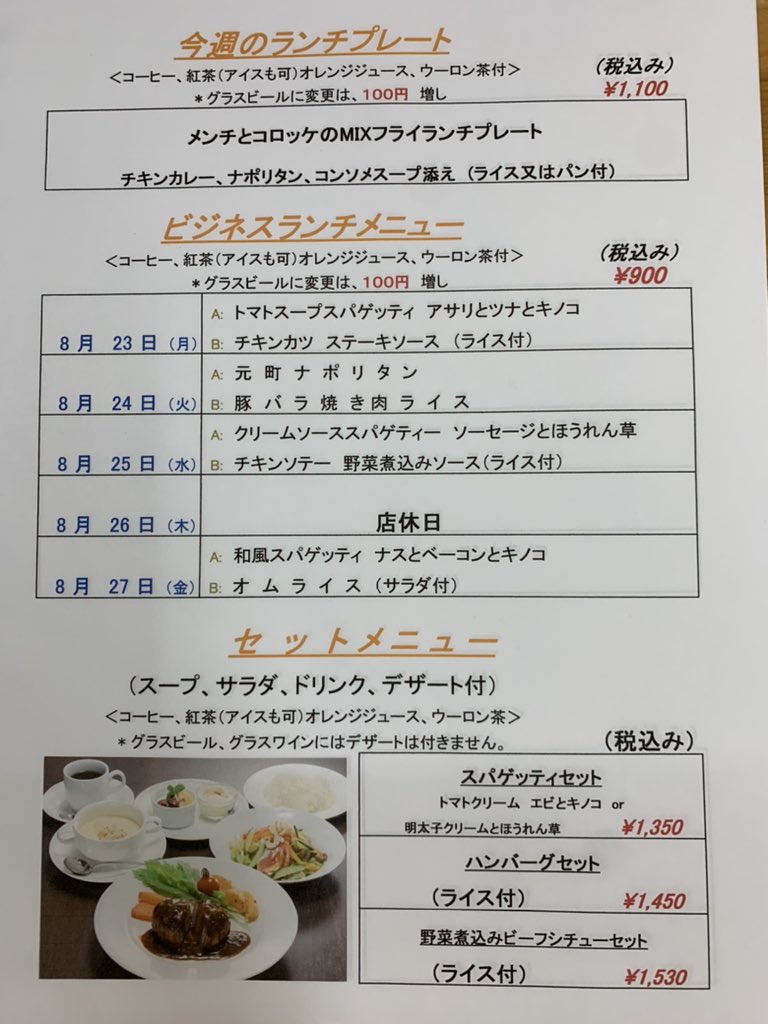 今週のランチプレート
＜コーヒー、紅茶（アイスも可）オレンジジュース、ウーロン茶付＞
（税込み）
＊グラスビールに変更は、100円 増し
¥1,100
メンチとコロッケのMIXフライランチプレート
チキンカレー、ナポリタン、コンソメスープ添え （ライス又はパン付）
ビジネスランチメニュー
＜コーヒー、紅茶（アイスも可）オレンジジュース、ウーロン茶付＞
（税込み）
＊グラスビールに変更は、100円 増し
¥900
A: トマトスープスパゲッティ アサリとツナとキノコ
8 月 23 日（月） B: チキンカツ ステーキソース （ライス付）
A: 元 町 ナ ポ リ タ ン
8 月 24 日（火） B: 豚 バ ラ 焼 き 肉 ラ イ ス
A: クリームソーススパゲティー ソーセージとほうれん草
8 月 25 日（水） B: チキンソテー 野菜煮込みソース（ライス付）
8 月 26 日（木） 店休日
A: 和風スパゲッティ ナスとベーコンとキノコ
8 月 27 日（金） B: オ ム ラ イ ス （サラダ付）
セ ッ ト メ ニ ュ ー
（スープ、サラダ、ドリンク、デザート付）
＜コーヒー、紅茶（アイスも可）オレンジジュース、ウーロン茶＞
＊グラスビール、グラスワインにはデザートは付きません。
（税込み）
スパゲッティセット
トマトクリーム エビとキノコ or
明太子クリームとほうれん草 ¥1,350
ハンバーグセット
（ライス付） ¥1,450
野菜煮込みビーフシチューセット
（ライス付） ¥1,530